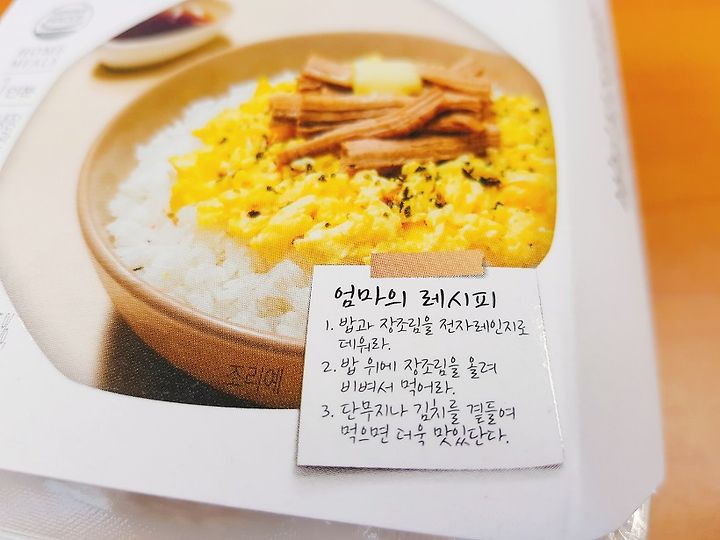 HOME
MEALS
조리예
엄마의 레시피
1. 밥과 장조림을 전자레인지로
데워라.
2. 밥 위에 장조림을 올려
비벼서 먹어라.
3. 단무지나 김치를 곁들여
먹으면 더욱 맛있단다.